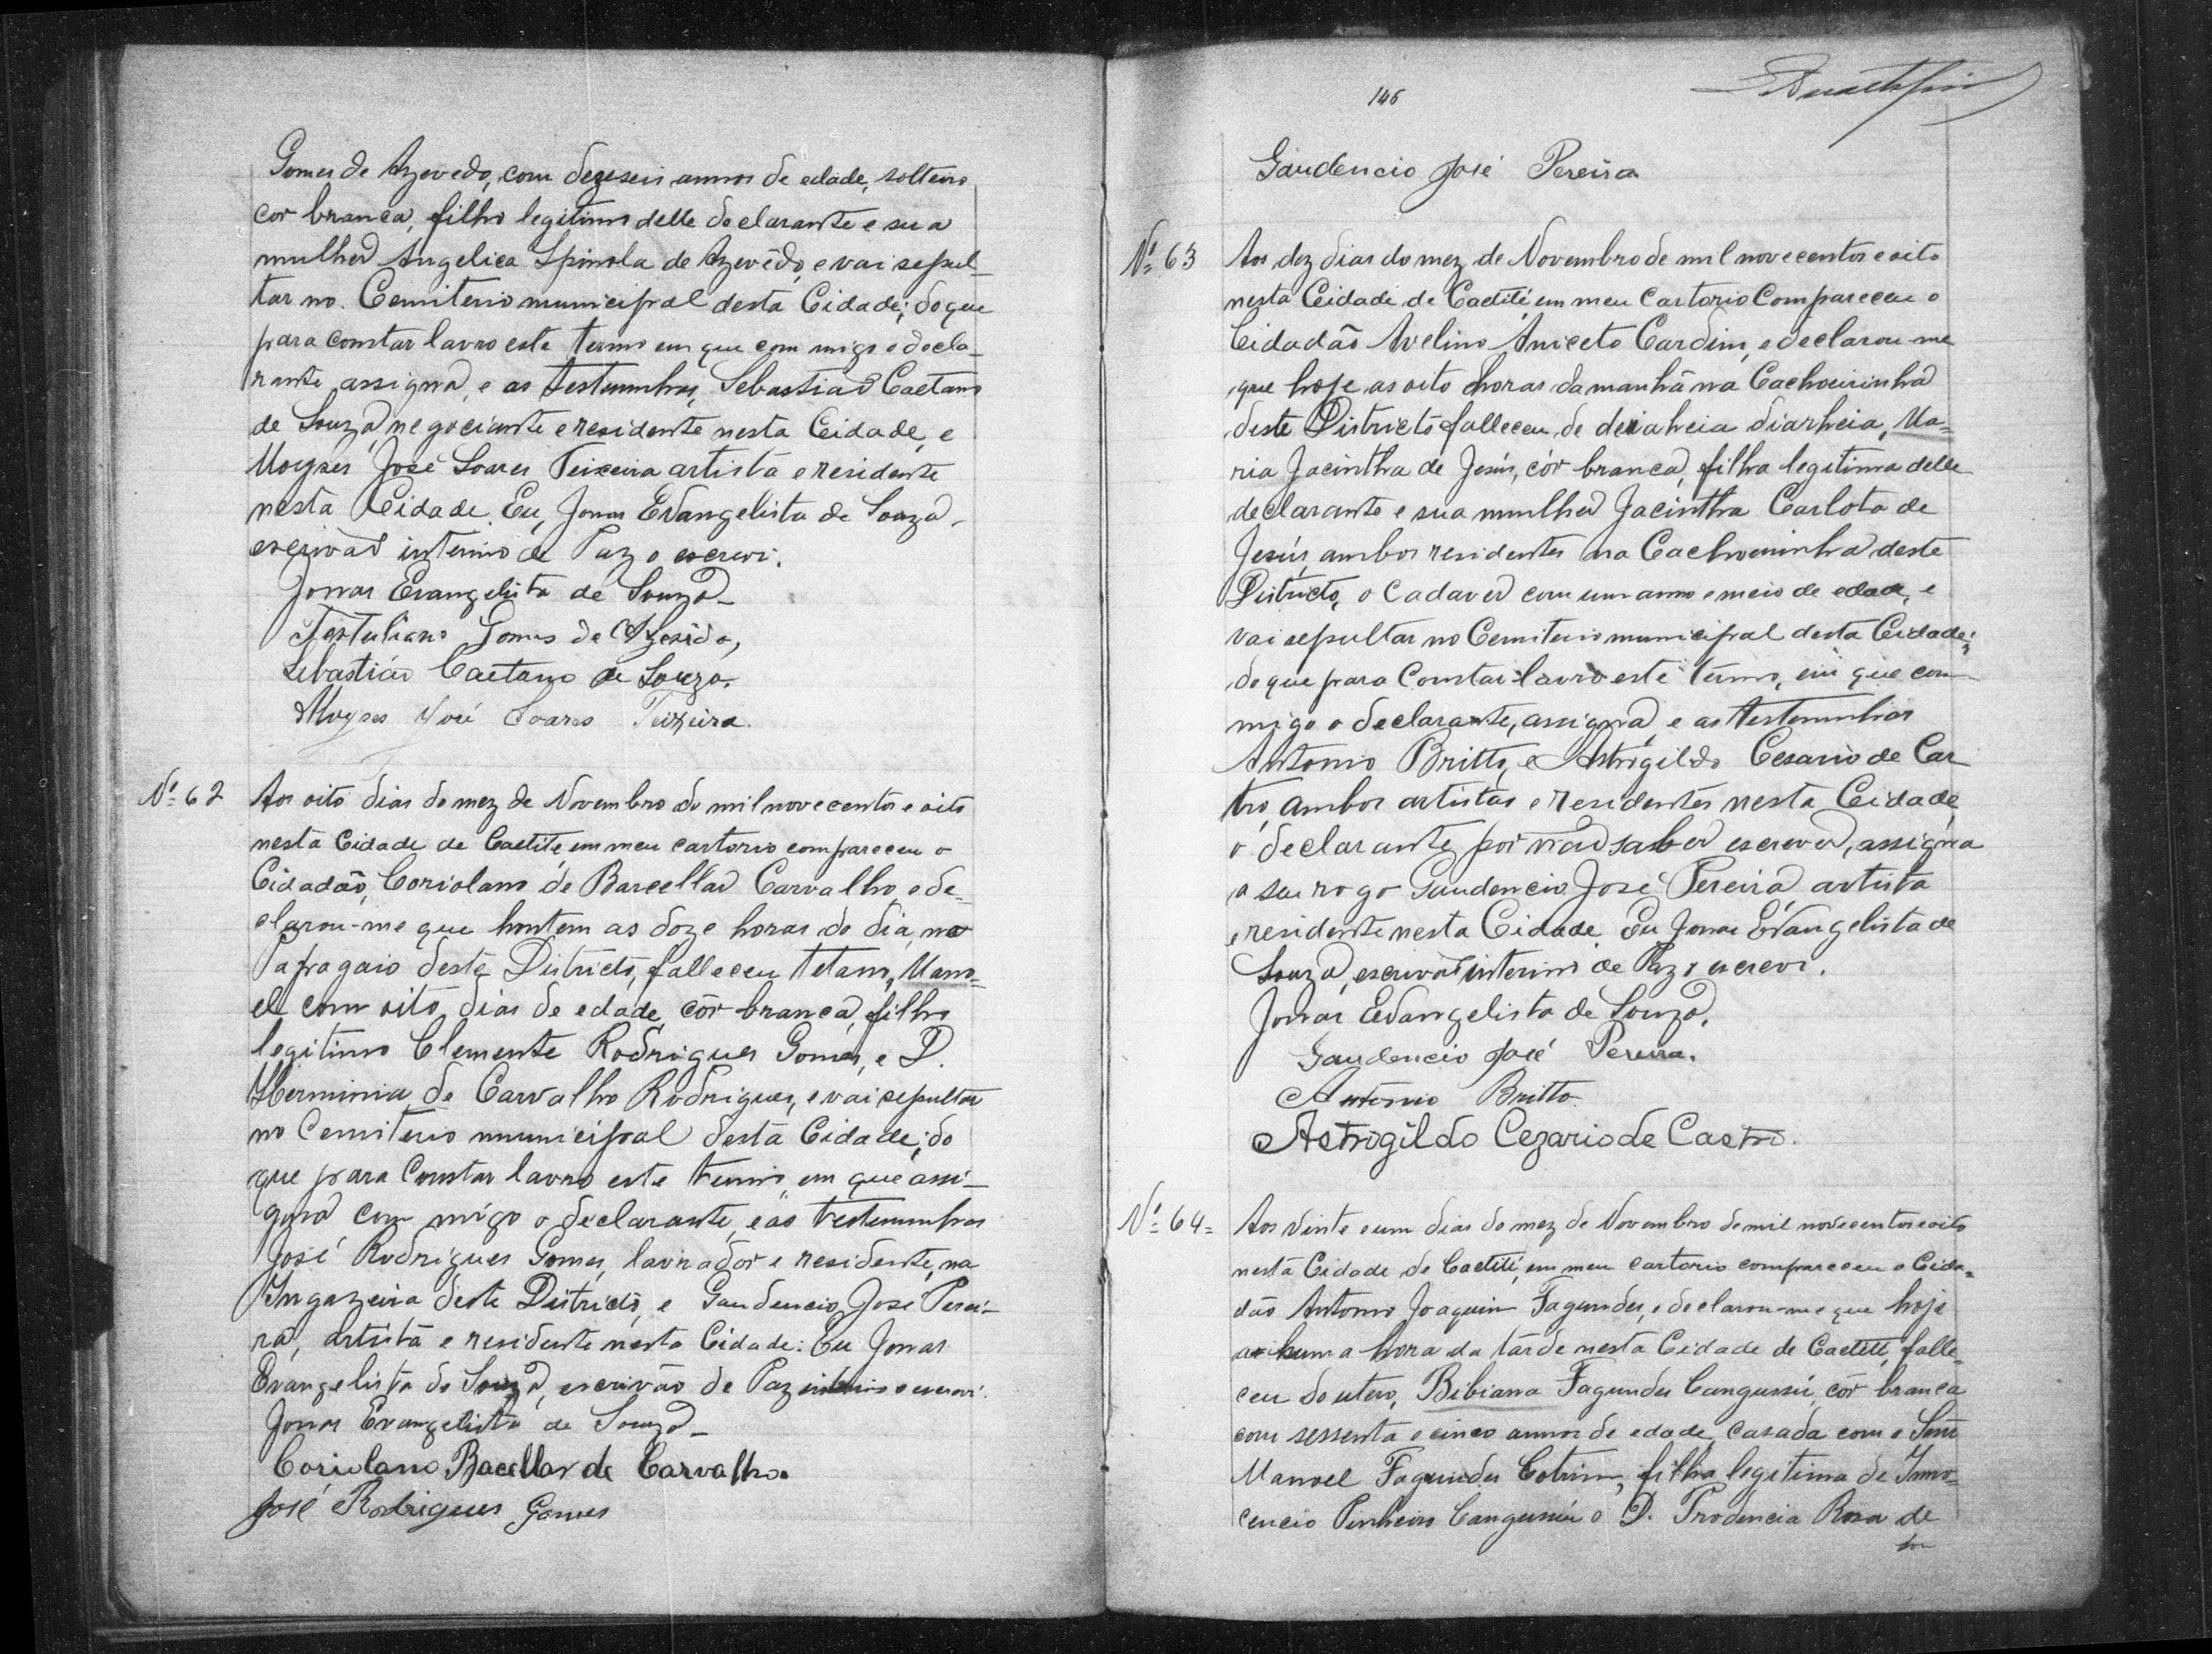 Gomes de Azevedo, com dezeseis annos de edade, solteiro
cor branca, filho legitimo delle declarante e sua
mulher Angelica Spinola de Azevêdo, e vai sepul-
tar no Cemiterio municipal desta Cidade; do que
para constar lavro este termo em que com migo o decla-
rante assigna, e as testemunhas, Sebastião Caetano
de Souza, negociante e residente nesta Cidade, e
Moyses José Soares Teixeira artista e residente
nesta Cidade. Eu, Jonas Evangelista de Souza,
escrivão interino de Paz o escrevi.
Jonas Evangelista de Souza
Tertuliano Gomes de Azevido,
Sebastião Caetano de Souza.
Moyses José Soares Teixeira.
Nº 62 Aos oito dias do mez de Novembro de mil novecentos e oito
nesta Cidade de Caetité em meu cartorio compareceu o
Cidadão, Coriolano de Barcellar Carvalho, e de-
clarou-me que hontem as doze horas do dia, no
Papagaio deste Districto, falleceu tetano, Mano-
el com oito dias de edade, côr branca, filho
legitimo Clemente Rodrigues Gomes, e D.
Herminia de Carvalho Rodrigues, e vai sepultar
no Cemiterio municipal desta Cidade; do
que para Constar lavro este termo, em que assi-
gna com migo o declarante, e as testemunhas
José Rodrigues Gomes, lavrador e residente, na
Ingazeira deste Districto, e Gaudencio José Perei-
ra, artista e residente nesta Cidade. Eu Jonas
Evangelista de Souza, escrivão de Paz interino o escrevi.
Jonas Evangelista de Souza
Coriolano Bacellar de Carvalho.
José Rodrigues Gomes
146
Gaudencio José Pereira
Nº 63 Aos dez dias do mez de Novembro de mil novecentos e oito
nesta Cidade de Caetité em meu Cartorio Compareceu o
Cidadão Avelino Aniceto Cardim, e declarou-me
que hoje as oito horas da manhã na Cachoeirinha
deste Districto falleceu de diarheia, Ma-
ria Jacintha de Jesús, côr branca, filha legitima delle
declarante e sua mulher Jacintha Carlota de
Jesús, ambos residentes na Cachoeirinha deste
Districto, o Cadaver com um anno e meio de edade, e
vai sepultar no Cemiterio municipal desta Cidade;
do que para Constar lavro este termo, em que com
migo o declarante, assigna, e as testemunhas
Antonio Britto, e Astrogildo Cesario de Cas
tro, ambos artistas e residentes nesta Cidade,
o declarante por não saber escrever, assigna
a seu rogo Gaudencio José Pereira, artista
e residente nesta Cidade. Eu Jonas Evangelista de
Souza, escrivão interino de Paz o escrevi.
Jonas Evangelista de Souza.
Gaudencio José Pereira.
Antonio Britto.
Astrogildo Cezario de Castro.
Nº 64 = Aos vinte e um dias do mez de Novembro de mil novecentos e oito
nesta Cidade de Caetité, em meu cartorio compareceu o Cida-
dão Antonio Joaquim Fagundes, e declarou-me que hoje
a huma hora da tarde nesta Cidade de Caetité, falle-
ceu do utero, Bibiana Fagundes Cangussú, côr branca
com sessenta e cinco annos de edade, casada com o Senr
Manoel Fagundes Cotrim, filha legitima de Inno-
cencio Pinheiro Cangussú e D. Prodencia Rosa de